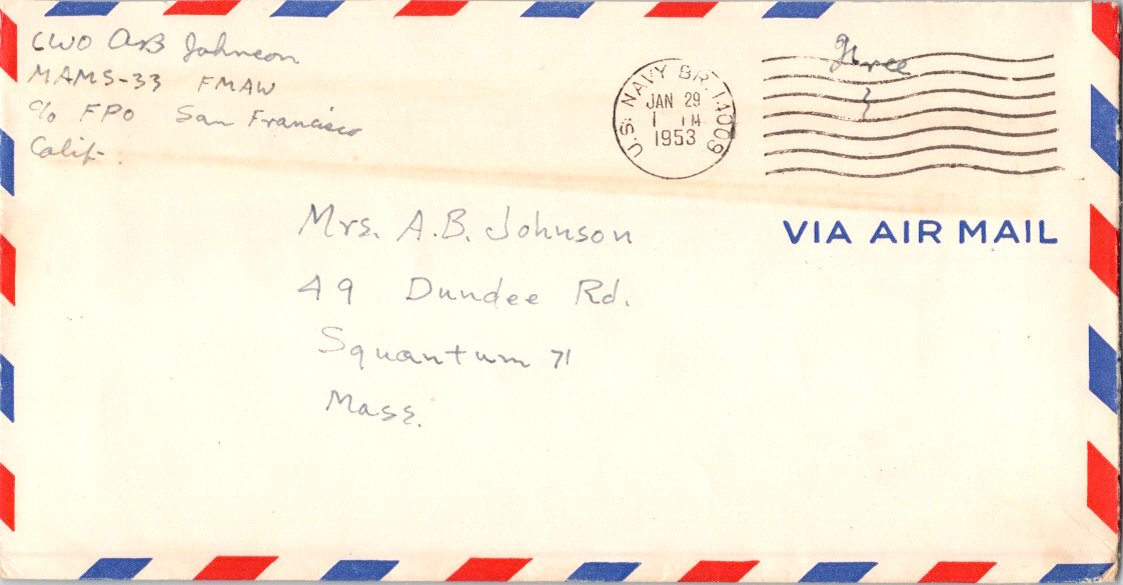 CWO A.B. Johnson
MAMS-33 FMAW
c/o FPO San Francisco
Calif.
Free
U.S. NAVY BR. 14009
JAN 29
1953
VIA AIR MAIL
Mrs. A.B. Johnson
49 Dundee Rd.
Squantum 71
Mass.